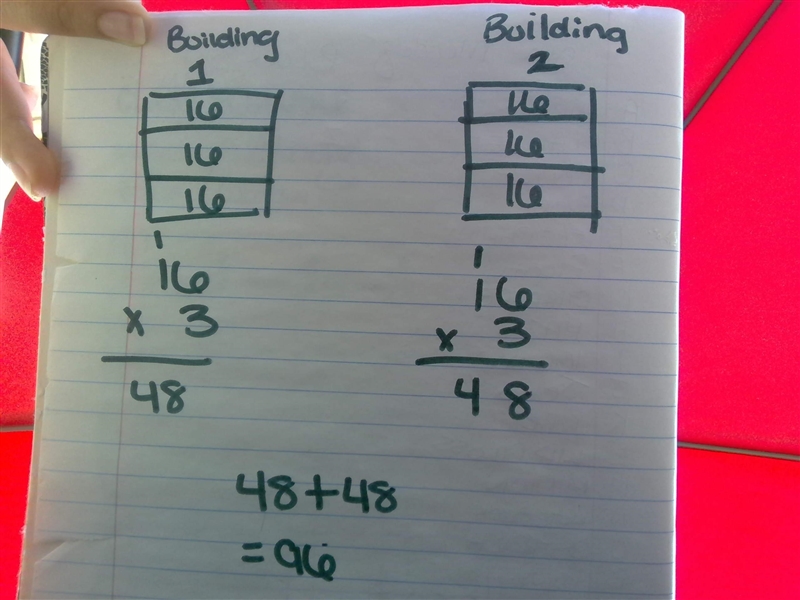 Building
1
16
16
16
1
16
x 3
48
Building
2
16
16
16
1
16
x 3
48
48+48
=96